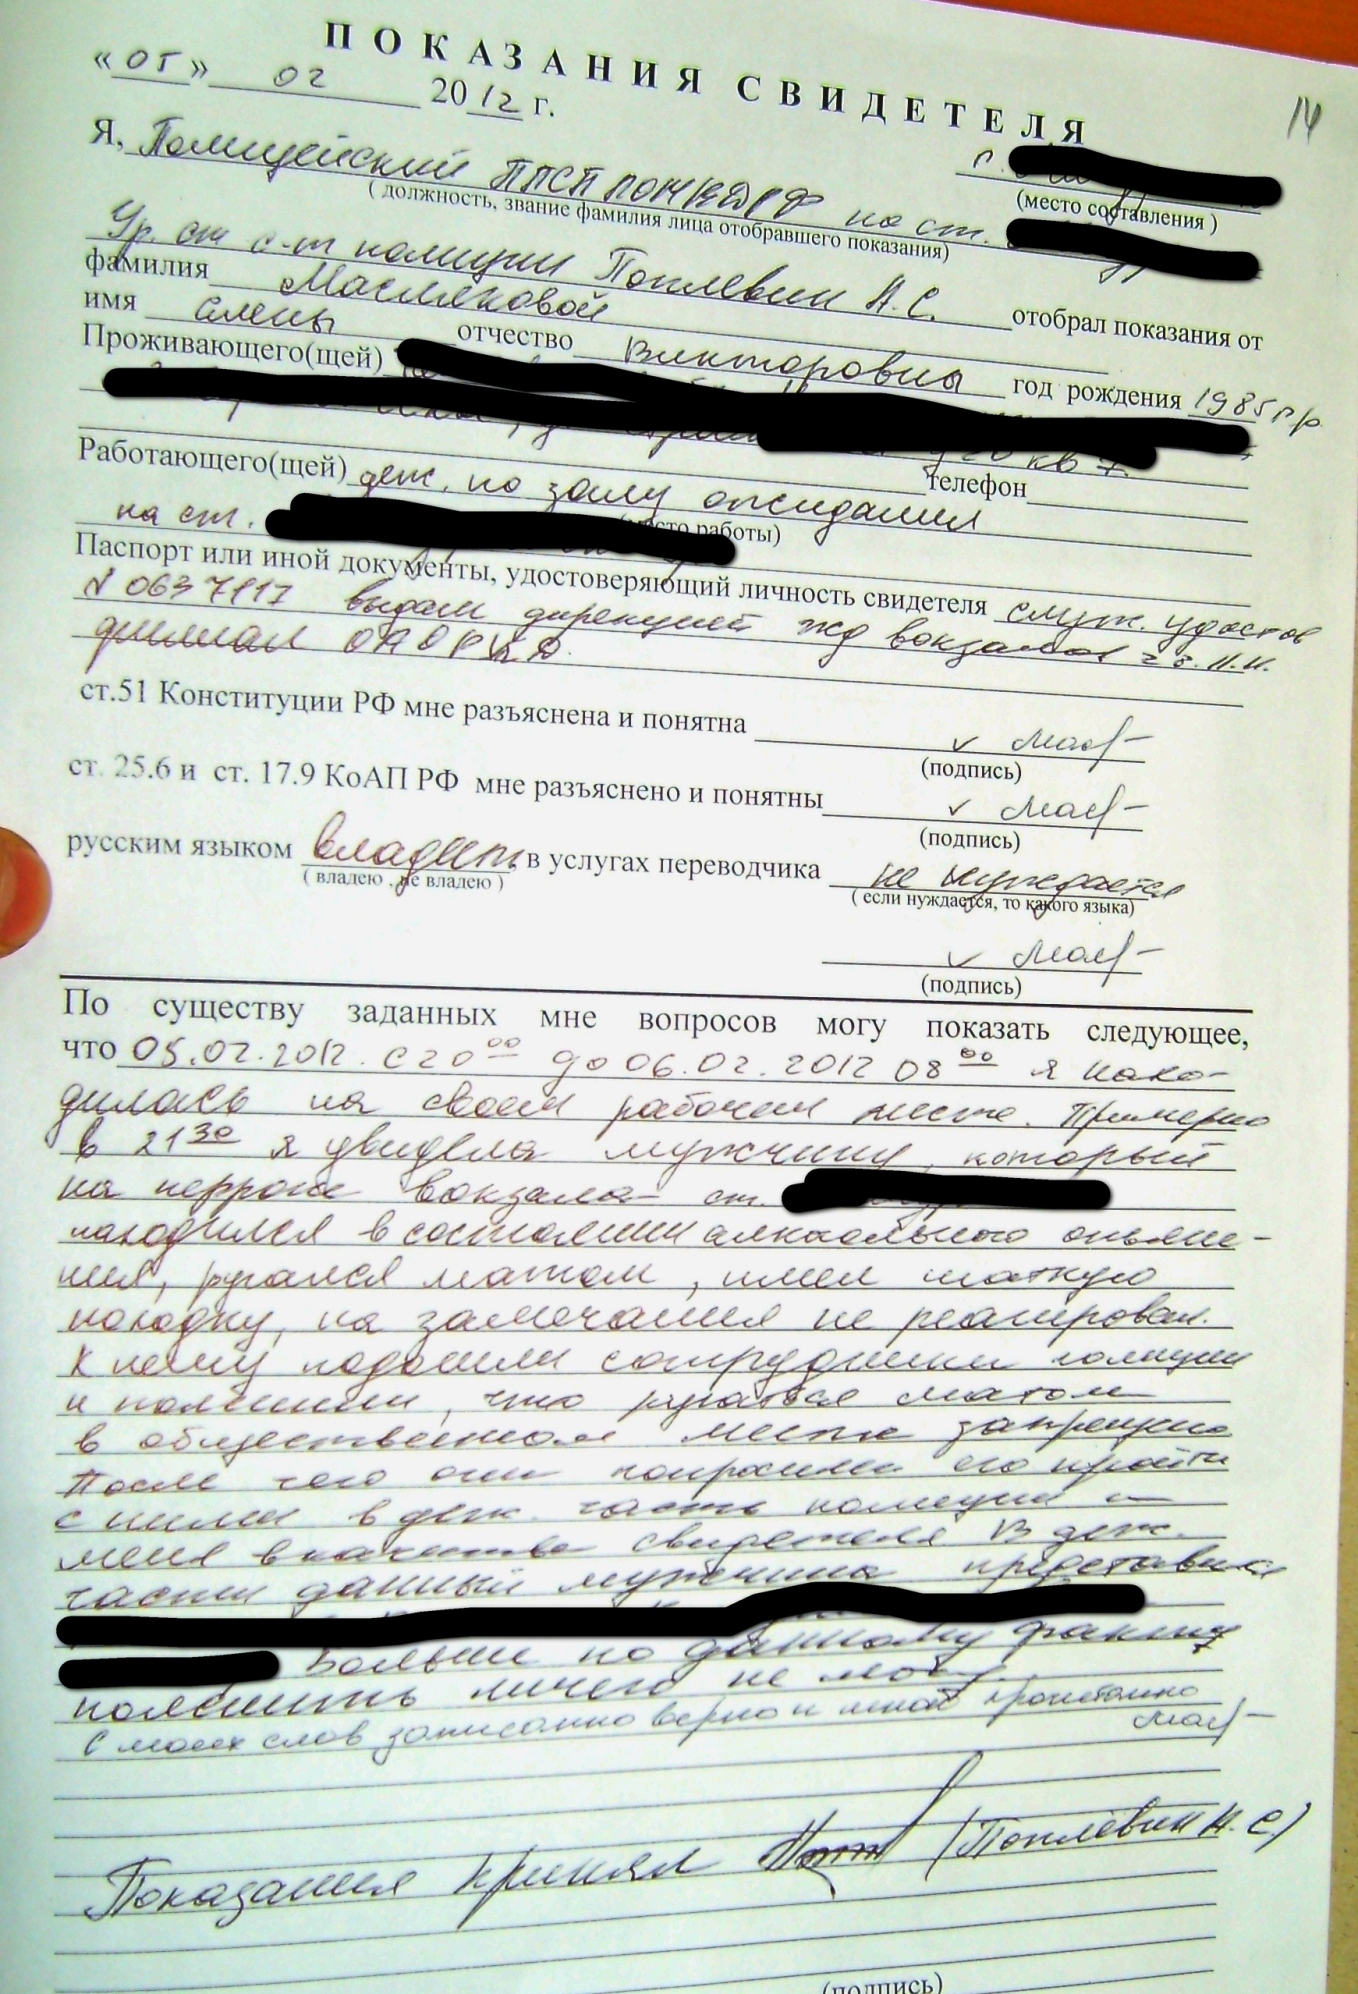 14
ПОКАЗАНИЯ СВИДЕТЕЛЯ
«05» 02 2012 г.
г.
(место составления )
Я, Полицейский ППСП ЛОП на ст.
( должность, звание фамилия лица отобравшего показания)
ст с-т полиции Поплевин Н.С. отобрал показания от
фамилия Масляковой
имя Елены отчество Викторовны год рождения 1985 г/р
Проживающего(щей)
кв 7.
телефон
Работающего(щей) деж. по залу ожидания
на ст. (место работы)
Паспорт или иной документы, удостоверяющий личность свидетеля служ. удостов
N 0637117 выдан дирекцией жд вокзалов г.
филиал ОАО РЖД.
ст.51 Конституции РФ мне разъяснена и понятна
(подпись)
ст. 25.6 и ст. 17.9 КоАП РФ мне разъяснено и понятны
(подпись)
русским языком владеет, в услугах переводчика не нуждается
( владею , не владею )
( если нуждается, то какого языка)
(подпись)
По существу заданных мне вопросов могу показать следующее,
что 05.02.2012. с 20 00 до 06.02.2012 08 00 я нахо-
дилась на своем рабочем месте. Примерно
в 21 30 я увидела мужчину, который
на перроне вокзала ст.
находился в состоянии алкогольного опьяне-
ния, ругался матом, имел шаткую
походку, на замечания не реагировал.
К нему подошли сотрудники полиции
и пояснили, что ругаться матом
в общественном месте запрещено
После чего они попросили его пройти
с ними в деж. часть полиции и
меня в качестве свидетеля В деж.
части данный мужчина представился
Больше по данному факту
пояснить ничего не могу.
С моих слов записанно верно и мной прочитанно
Показания принял (Поплевин Н.С.)
(подпись)